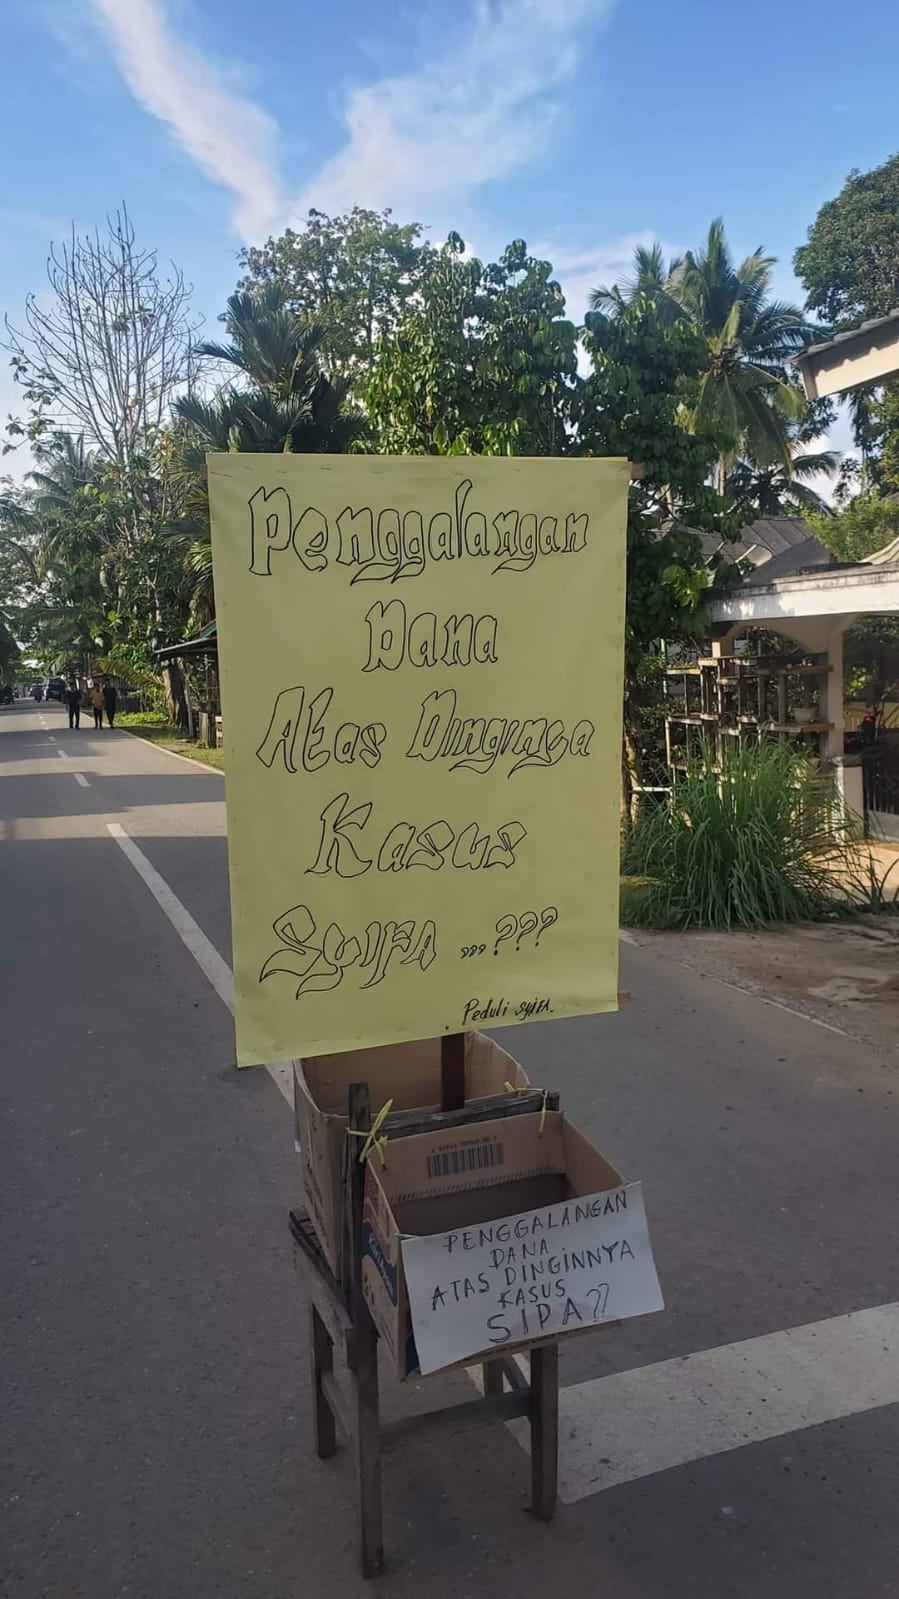 Penggalangan
Dana
Atas Dinginnya
Kasus
Syifa ,,,, ???
Peduli Syifa.
PENGGALANGAN
DANA
ATAS DINGINNYA
KASUS
SIPA??